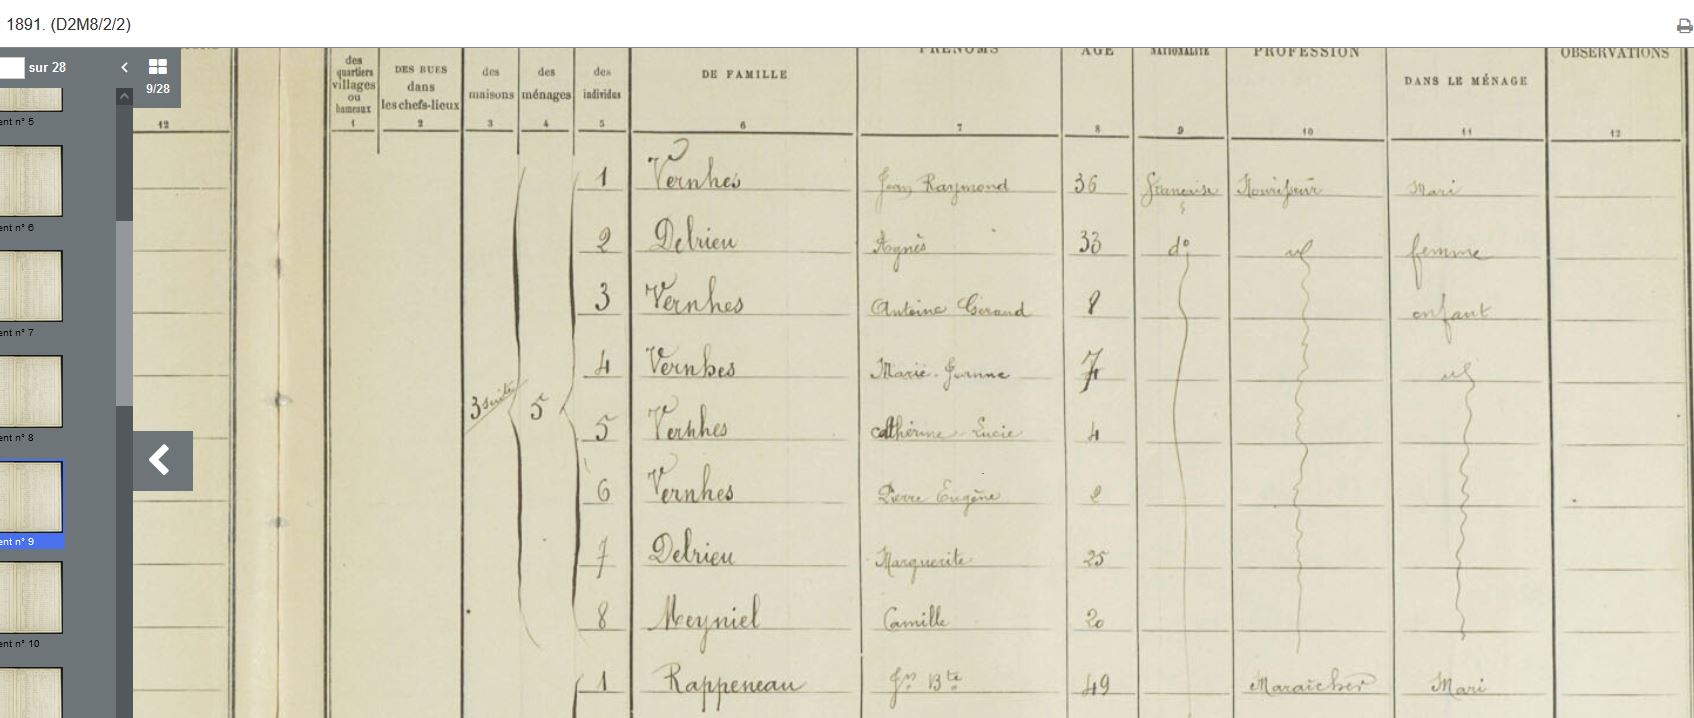 1891. (D2M8/2/2)
sur 28
9/28
ent n° 5
ent n° 6
ent n° 7
ent n° 8
ent n° 9
ent n° 10
12
des quartiers villages ou hameaux
DES RUES dans les chefs-lieux
des maisons
des ménages
des individus
DE FAMILLE
PRÉNOMS
AGE
NATIONALITÉ
PROFESSION
DANS LE MÉNAGE
OBSERVATIONS
1 2 3 4 5 6 7 8 9 10 11 12
1 Vernhes Jean Raymond 36 française Nourisseur Mari
2 Delrieu Agnès 33 do id femme
3 Vernhes Antoine Géraud 8 enfant
4 Vernhes Marie-Jeanne 7 id
3 suite 5
5 Vernhes Cathérine-Lucie 4
6 Vernhes Pierre Eugène 2
7 Delrieu Marguerite 25
8 Meyniel Camille 20
1 Rappeneau Jn Bte 49 Maraîcher Mari